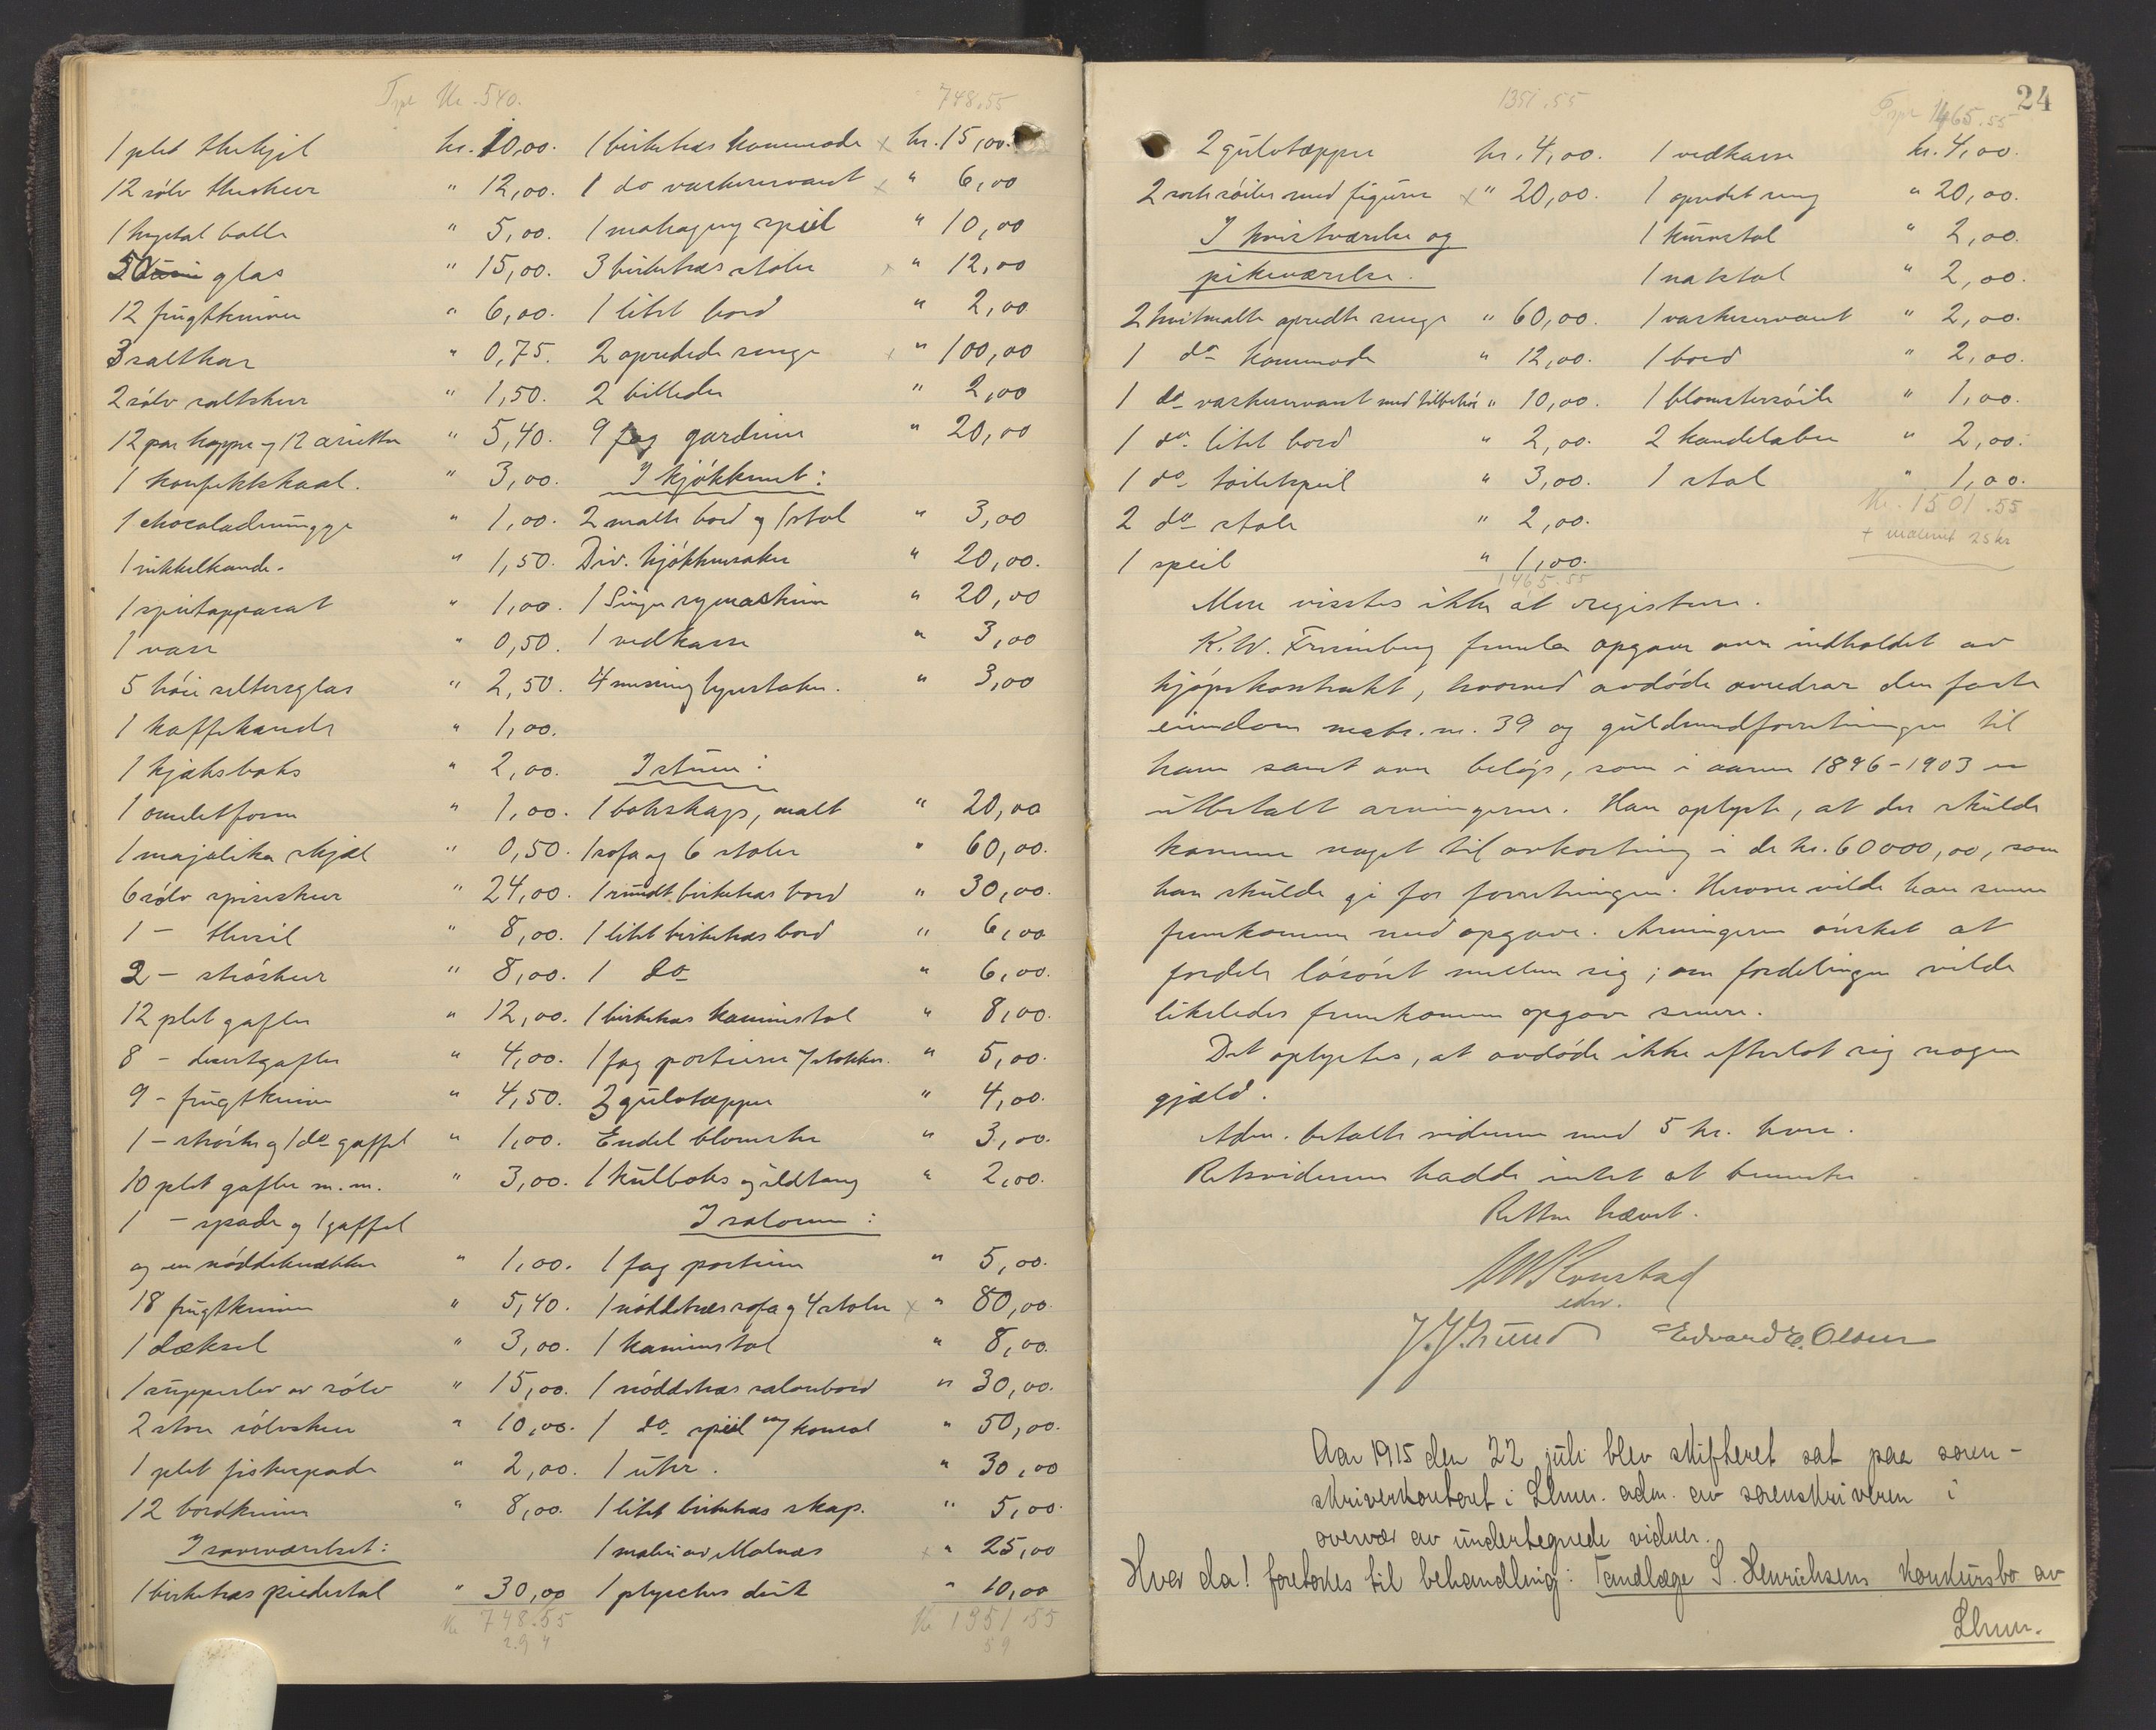 Trpt Kr. 540.
1 plet thekjel kr. 10,00.
12 sölv theskeer " 12,00.
1 krystal bolle " 5,00.
50 glas " 15,00.
12 frugtkniver " 6,00.
3 saltkar " 0,75.
2 sölv saltskeer " 1,50.
12 par kopper og 12 asietter " 5,40.
1 konfektskaal. " 3,00.
1 chocolademugge " 1,00.
1 nikkelkande. " 1,50.
1 spritapparat " 1,00.
1 vase " 0,50.
5 höie seltersglas " 2,50.
1 kaffekande " 1,00.
1 kjæksboks " 2,00.
1 omeletform " 1,00.
1 majolika skjæl " 0,50.
6 sölv spiseskeer " 24,00.
1 - thesil " 8,00.
2 - ströskeer " 8,00.
12 plet gafler " 12,00.
8 - desertgafler " 4,00.
9 - frugtkniver " 4,50.
1 - ströske og 1 do gaffel " 1,00.
10 plet gafler m.m. " 3,00.
1 - spade og 1 gaffel
og en nöddeknækker " 1,00.
18 frugtkniver " 5,40.
1 dæksel " 3,00.
1 suppeslev av sölv " 15,00.
2 store sölvskeer " 10,00.
1 plet fiskespade " 2,00.
12 bordkniver " 8,00.
I soveværelset:
1 birketræs piedestal " 30,00
Kr 748.55
748.55
1 birketræs kommode x kr. 15,00.
1 do vaskeservant x " 6,00
1 mahogny speil " 10,00
3 birketræs stoler x " 12,00
1 litet bord " 2,00
2 opredede senge x " 100,00
2 billeder " 2,00
9 fag gardiner " 20,00
I kjökkenet:
2 malte bord og 1 stol " 3,00
Div. kjökkensaker " 20,00.
1 Singer symaskin " 20,00
1 vedkasse " 3,00
4 messing lysestaker. " 3,00
I stuen:
1 bokskap, malt " 20,00
1 sofa og 6 stoler " 60,00.
1 rundt birketræs bord " 30,00.
1 litet birketræs bord " 6,00
1 do " 6,00.
1 birketræs kaminstol " 8,00.
1 fag portierer m/ stokker. " 5,00.
3 gulvtæpper " 4,00.
Endel blomster " 3,00.
1 kulboks og ildtang " 2,00.
I salonen:
1 fag portierer " 5,00.
1 nöddetræs sofa og 4 stoler x " 80,00.
1 kaminstol " 8,00.
1 nöddetræs salonbord " 30,00.
1 do speil m/ konsol " 50,00.
1 uhr. " 30,00
1 litet birketræs skap. " 5,00.
1 maleri av Malnæs x " 25,00
1 plysches duk " 10,00
Kr 1351.55
24
1351.55
2 gulvtæpper kr. 4,00.
2 sorte söiler med figurer x " 20,00.
I kvistværelse og
pikeværelse.
2 hvitmalte opredte senge " 60,00.
1 do kommode " 12,00.
1 do vaskeservant med tilbehör " 10,00.
1 do litet bord " 2,00.
1 do toiletspeil " 3,00.
2 do stole " 2,00.
1 speil " 1,00.
1465.55
Trpt 1465.55
1 vedkasse kr. 4,00.
1 opredet seng " 20,00.
1 kurvstol " 2,00.
1 natstol " 2,00.
1 vaskeservant " 2,00.
1 bord " 2,00.
1 blomstersöile " 1,00.
2 kandelaber " 2,00.
1 stol " 1,00.
Kr. 1501.55
+ maleriet 25 kr
Mere visstes ikke at registrere.
K. W. fremla opgave over indholdet av
kjöpekontrakt, hvorved avdöde overdrar den faste
eiendom matr. nr. 39 og guldsmedforretningen til
ham samt over belöp, som i aarene 1896-1903 er
utbetalt arvingerne. Han oplyste, at der skulde
komme noget til avkortning i de kr. 60000,00, som
han skulde gi for forretningen. Herover vilde han senere
fremkomme med opgave. Arvingerne önsket at
fordele lösöret mellem sig; om fordelingen vilde
likeledes fremkomme opgave senere.
Det oplystes, at avdöde ikke efterlot sig nogen
gjæld.
Adm. betalte vidnerne med 5 kr. hver.
Retsvidnerne hadde intet at bemerke
Retten hævet.
edsv.
Edvard E. Olsen
Aar 1915 den 22 juli blev skifteret sat paa soren-
skriverkontoret i Lhmr. adm. av sorenskriveren i
overvær av undertegnede vidner.
Hvor da! foretokes til behandling: Tandlæge S. Henrichsens konkursbo av
Lhmr.